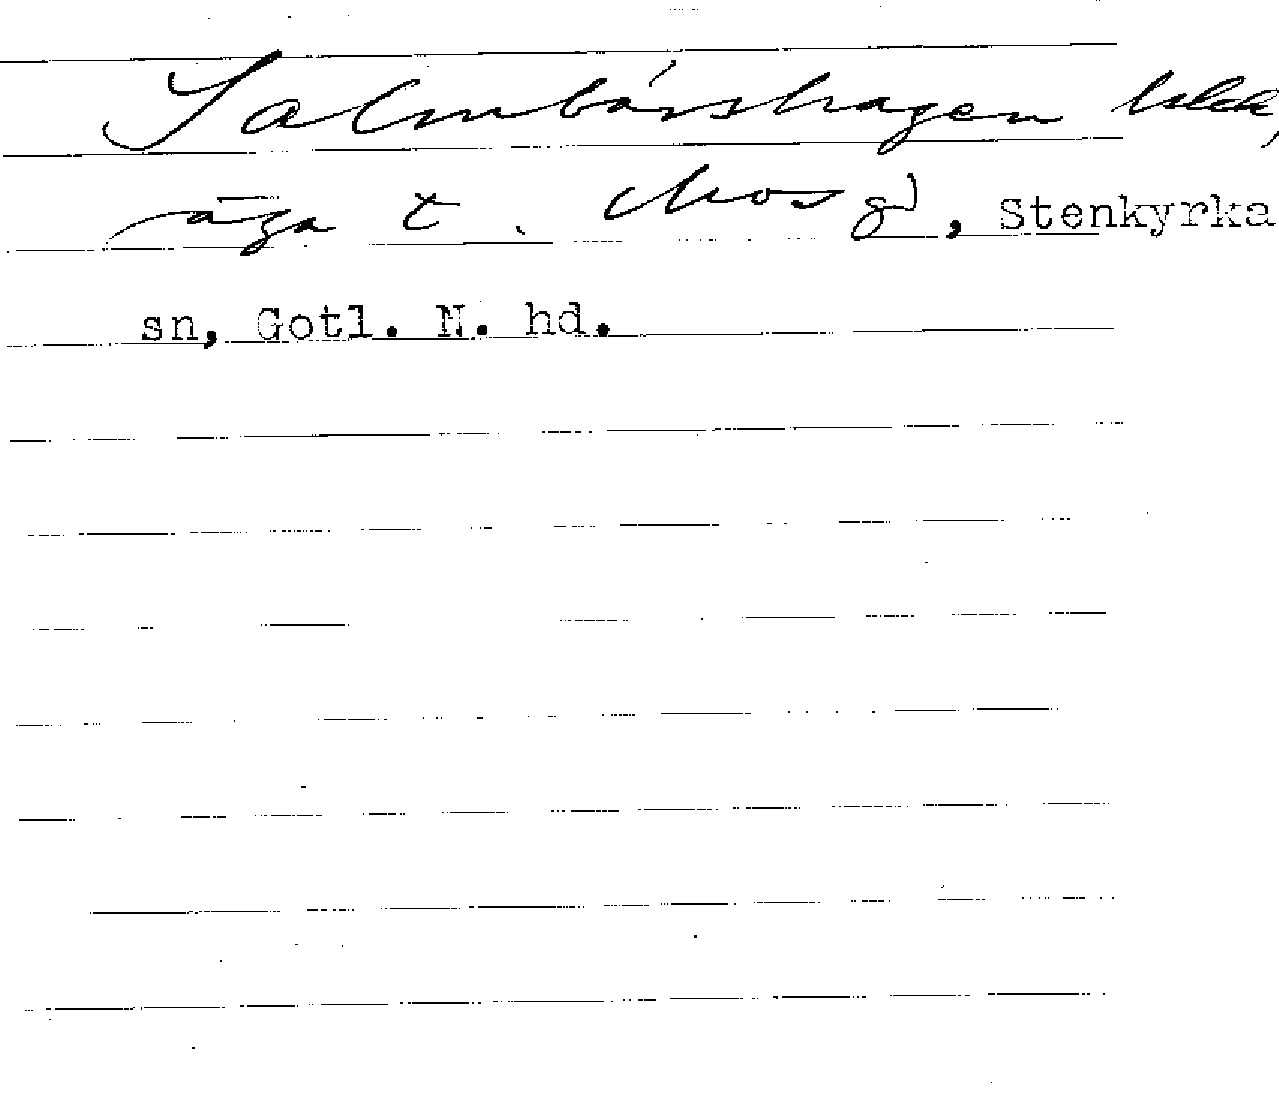 Salmbárshagen
äga t. Mos gd, Stenkyrka
sn, Gotl. N. hd.